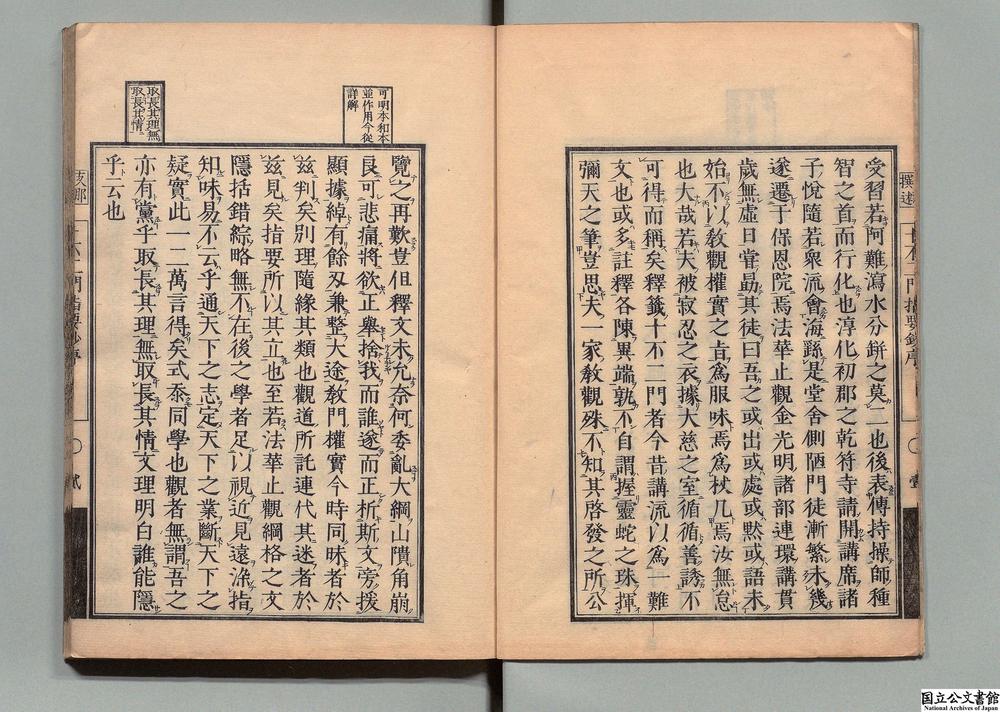 受習若阿難瀉水分缾之莫二也後表傳持操師種
智之首而行化也淳化初郡之乾符寺請開講席諸
子悅隨若衆流會海繇是堂舍側陋門徒漸繁未幾
遂遷于保恩院焉法華止觀金光明諸部連環講貫
歲無虛日甞勗其徒曰吾之或出或處或黙或語未
始不以敎觀權實之旨爲服味焉爲杖几焉汝無怠
也大哉若夫被寂忍之衣據大慈之室循循善誘不
可得而稱矣釋籤十不二門者今昔講流以爲一難
文也或多註釋各陳異端孰不自謂握靈蛇之珠揮
彌天之筆豈思夫一家敎觀殊不知其啓發之所公
覽之再歎豈但釋文未允奈何委亂大綱山隤角崩
良可悲痛將欲正舉捨我而誰遂而正析斯文旁援
顯據綽有餘刃兼整大途敎門權實今時同昧者於
玆判矣別理隨緣其類也觀道所託連代共迷者於
玆見矣指要所以其立也至若法華止觀綱格之文
隱括錯綜略無不在後之學者足以視近見遠染指
知味易不云乎通天下之志定天下之業斷天下之
疑實此一二萬言得矣式忝同學也觀者無謂吾之
亦有黨乎取長其理無取長其情文理明白誰能隱
乎云也
可明本和本
並作用今從
詳解
取長其理無
取長其情
壹
貳
国立公文書館
National Archives of Japan